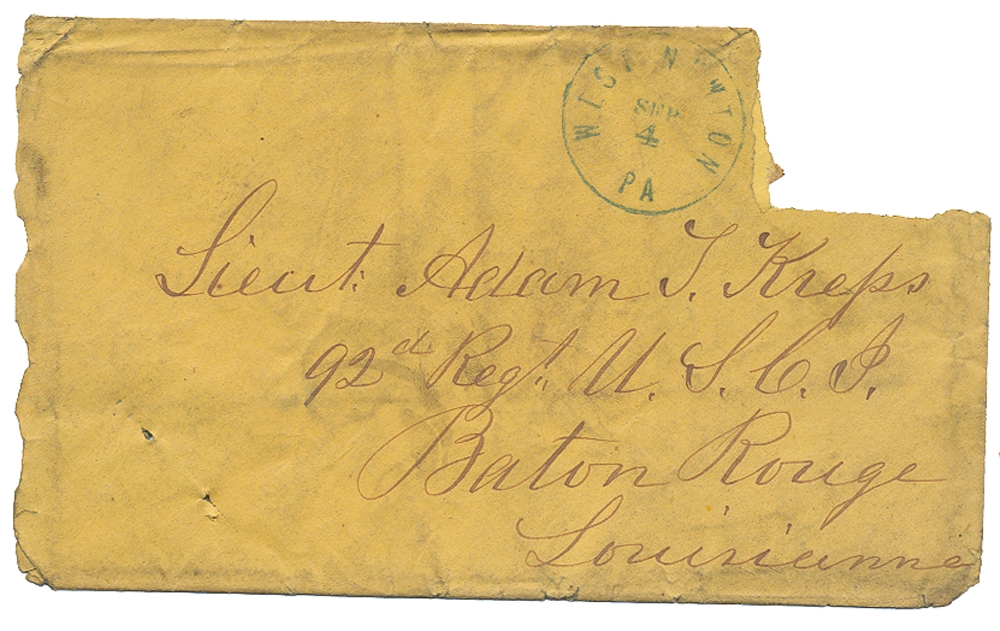 WEST NEWTON
SEP
4
PA
Lieut. Adam T. Kreps
92d Regt. U. S. C. I.
Baton Rouge
Louisianna